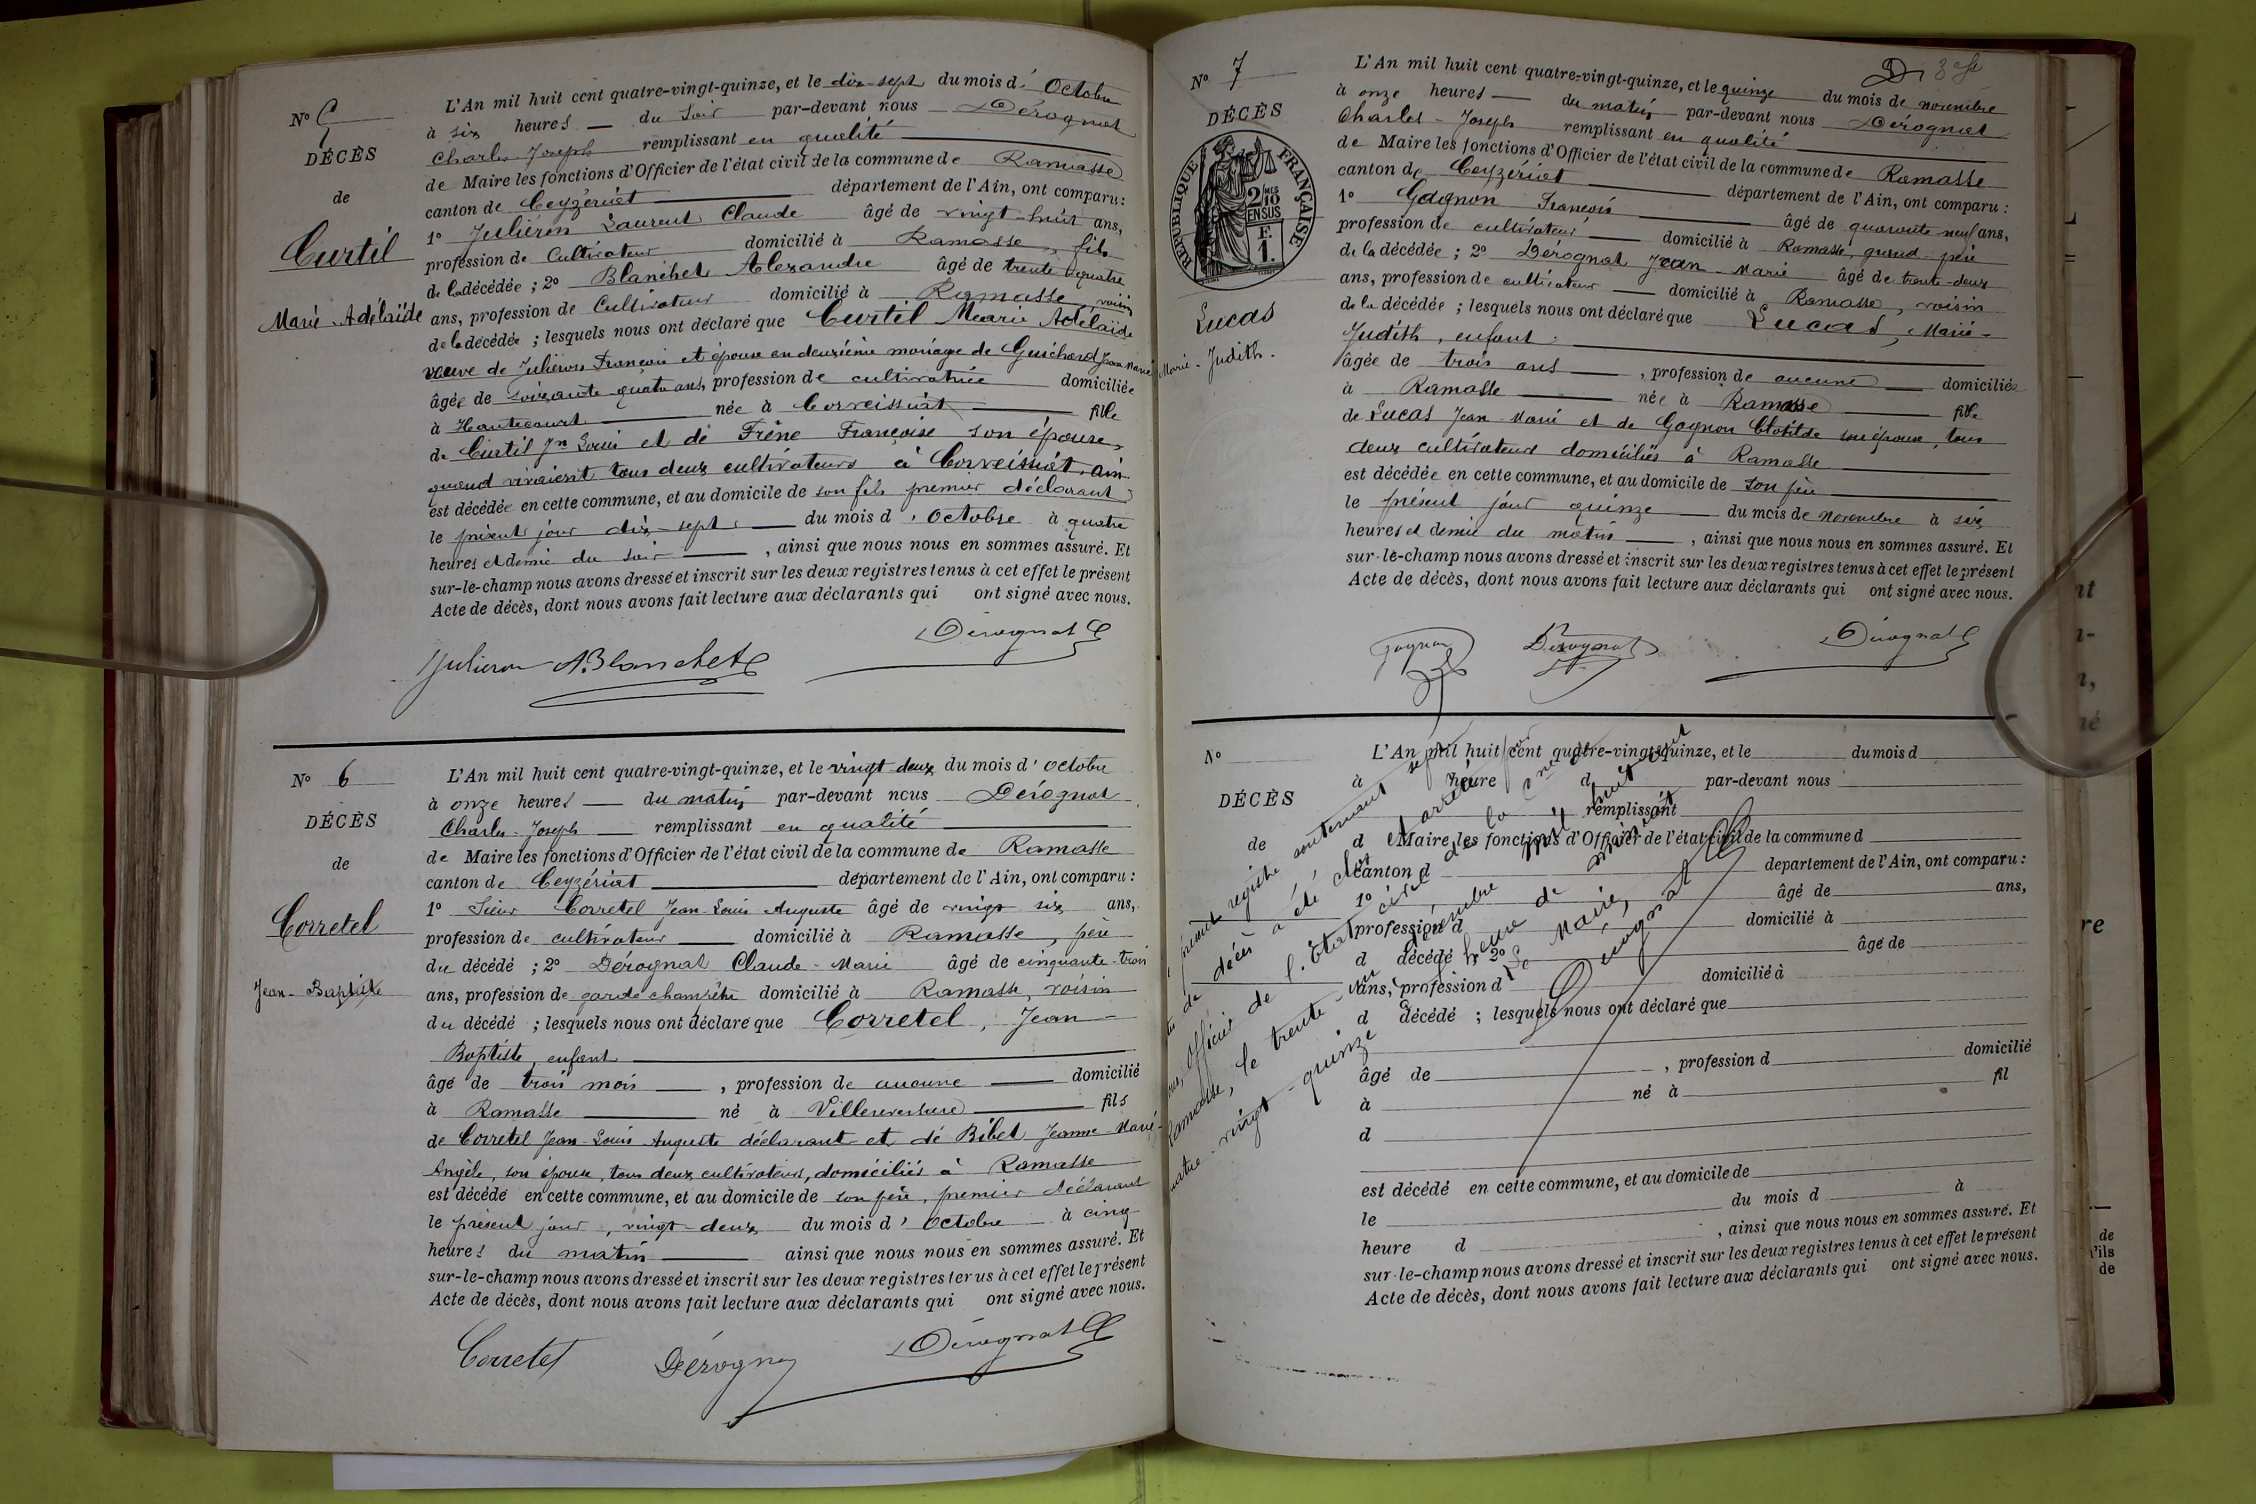 N°
DÉCÈS
de
Curtil
Marie Adélaïde
L'An mil huit cent quatre-vingt-quinze, et le dix-sept du mois d' Octobre
à six heures du Soir par-devant nous Dérognat
Charles Joseph remplissant en qualité
de Maire les fonctions d'Officier de l'état civil de la commune de Ramasse
canton de Ceyzériat département de l'Ain, ont comparu:
1° Julièron Laurent Claude âgé de vingt-huit ans,
profession de Cultivateur domicilié à Ramasse, fils
de la décédée; 2° Blanchet Alexandre âgé de trente quatre
ans, profession de Cultivateur domicilié à Ramasse, voisin
de la décédée; lesquels nous ont déclaré que Curtil Marie Adélaïde
veuve de Julièron François et épouse en deuxième mariage de Guichard Jean Marie
âgée de soixante quatre ans, profession de cultivatrice domiciliée
à Hautecourt née à Corveissiat fille
de Curtil Jn Louis et de Frêne Françoise son épouse,
quand vivaient tous deux cultivateurs à Corveissiat, Ain
est décédée en cette commune, et au domicile de son fils premier déclarant
le présent jour dix-sept du mois d' Octobre à quatre
heures et demie du soir, ainsi que nous nous en sommes assuré. Et
sur-le-champ nous avons dressé et inscrit sur les deux registres tenus à cet effet le présent
Acte de décès, dont nous avons fait lecture aux déclarants qui ont signé avec nous.
Dérognat
Julieron ABlanchet
N° 6
DÉCÈS
de
Corretel
Jean-Baptiste
L'An mil huit cent quatre-vingt-quinze, et le vingt deux du mois d' octobre
à onze heures du matin par-devant nous Dérognat
Charles-Joseph remplissant en qualité
de Maire les fonctions d'Officier de l'état civil de la commune de Ramasse
canton de Ceyzériat département de l'Ain, ont comparu:
1° Sieur Corretel Jean Louis Auguste âgé de vingt six ans,
profession de cultivateur domicilié à Ramasse, père
du décédé; 2° Dérognat Claude-Marie âgé de cinquante-trois
ans, profession de garde champêtre domicilié à Ramasse, voisin
du décédé; lesquels nous ont déclaré que Corretel, Jean-
Baptiste, enfant
âgé de trois mois, profession de aucune domicilié
à Ramasse né à Villereversure fils
de Corretel Jean-Louis Auguste déclarant et de Bibet Jeanne-Marie-
Angèle, son épouse, tous deux cultivateurs, domiciliés à Ramasse
est décédé en cette commune, et au domicile de son père, premier déclarant
le présent jour, vingt-deux du mois d' octobre à cinq
heures du matin ainsi que nous nous en sommes assuré. Et
sur-le-champ nous avons dressé et inscrit sur les deux registres tenus à cet effet le présent
Acte de décès, dont nous avons fait lecture aux déclarants qui ont signé avec nous.
Corretel Dérogna Dérognat
N° 7
DÉCÈS
RÉPUBLIQUE FRANÇAISE
2 MES
10
EN SUS
F.
1.
Lucas
Marie-Judith.
L'An mil huit cent quatre-vingt-quinze, et le quinze du mois de novembre
à onze heures du matin par-devant nous Dérognat
Charles-Joseph remplissant en qualité
de Maire les fonctions d'Officier de l'état civil de la commune de Ramasse
canton de Ceyzériat département de l'Ain, ont comparu:
1° Gagnon François âgé de quarante neuf ans,
profession de cultivateur domicilié à Ramasse, grand-père
de la décédée; 2° Dérognat Jean-Marie âgé de trente-deux
ans, profession de cultivateur domicilié à Ramasse, voisin
de la décédée; lesquels nous ont déclaré que Lucas, Marie-
Judith, enfant
âgée de trois ans, profession de aucune domiciliée
à Ramasse née à Ramasse fille
de Lucas Jean-Marie et de Gagnon Clotilde son épouse, tous
deux cultivateurs domiciliés à Ramasse
est décédée en cette commune, et au domicile de son père
le présent jour quinze du mois de novembre à six
heures et demie du matin, ainsi que nous nous en sommes assuré. Et
sur-le-champ nous avons dressé et inscrit sur les deux registres tenus à cet effet le présent
Acte de décès, dont nous avons fait lecture aux déclarants qui ont signé avec nous.
Gagnon Dérognat Dérognat
N°
DÉCÈS
de
L'An mil huit cent quatre-vingt-quinze, et le du mois d
à heure d par-devant nous
remplissant
d Maire les fonctions d'Officier de l'état civil de la commune d
canton d département de l'Ain, ont comparu:
1° âgé de ans,
profession d domicilié à
d décédé 2° âgé de
ans, profession d domicilié à
d décédé; lesquels nous ont déclaré que
âgé de, profession d domicilié
à né à fil
d
est décédé en cette commune, et au domicile de
le du mois d à
heure d, ainsi que nous nous en sommes assuré. Et
sur-le-champ nous avons dressé et inscrit sur les deux registres tenus à cet effet le présent
Acte de décès, dont nous avons fait lecture aux déclarants qui ont signé avec nous.
présent registre contenant sept
de décès a été clos et arrêté par
Officier de l'état civil de la
Ramasse, le trente un décembre mil huit cent
quatre-vingt-quinze à heure de minuit
Le Maire,
Dérognat